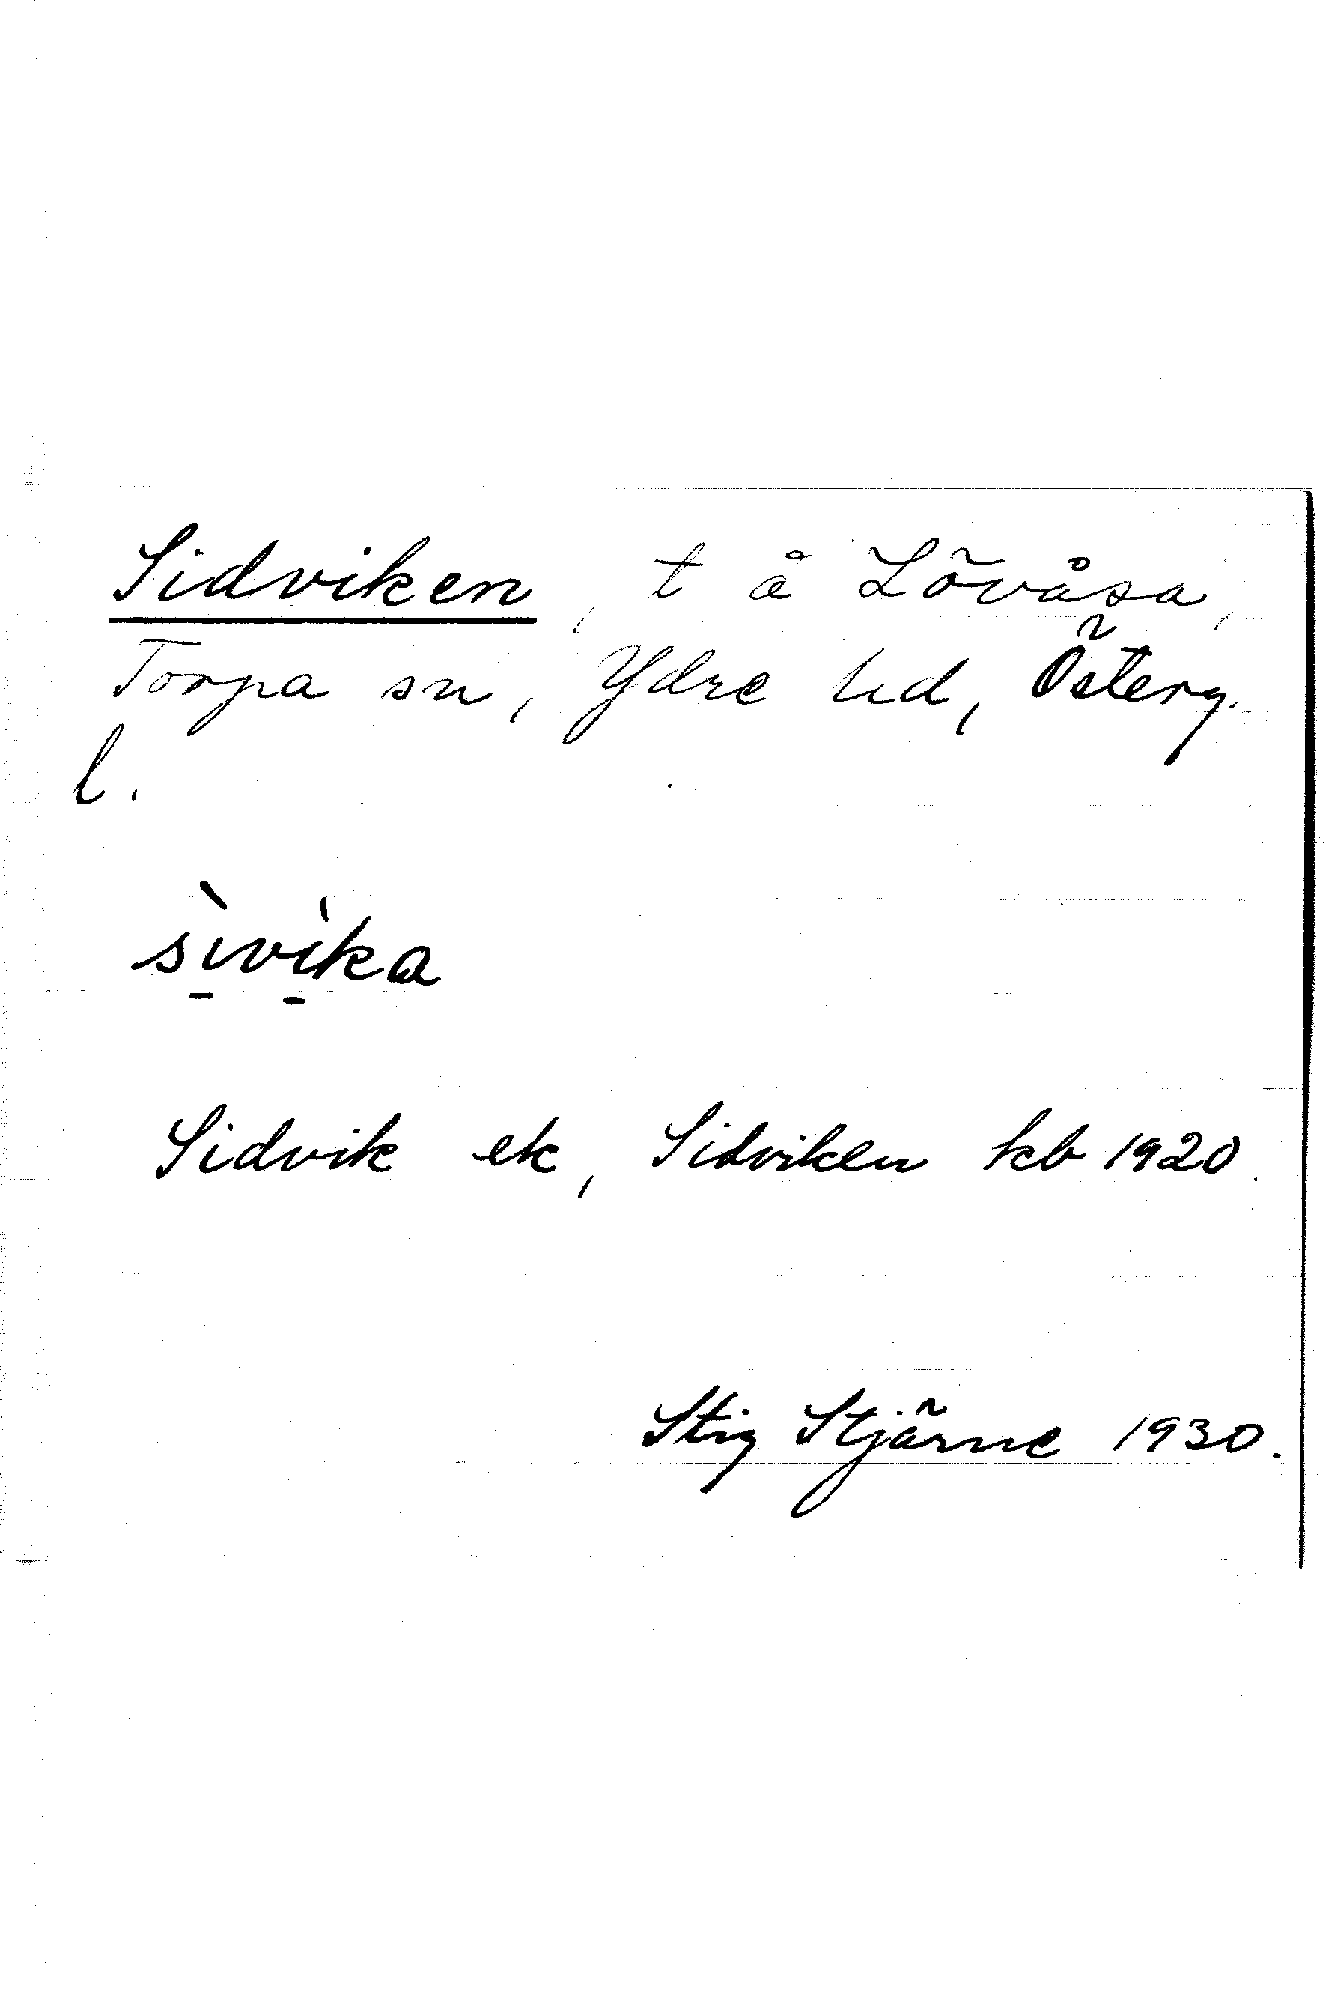 Sidviken, t å Lövåsa,
Torpa sn, Ydre hd, Österg.
l.
sı̠̀vı̠̀ka
Sidvik ek, Sidviken kb 1920.
Stig Stjärne 1930.